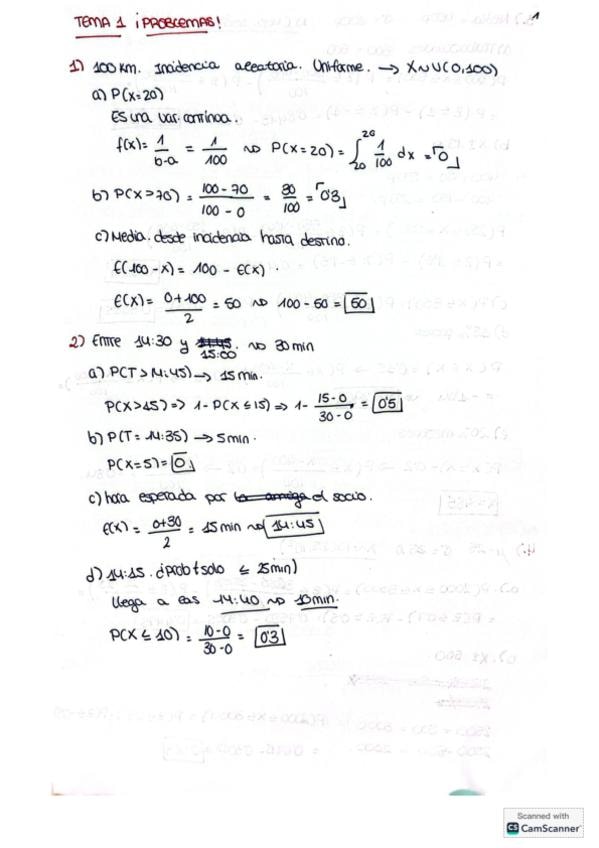 1
TEMA 1 ¡PROBLEMAS!
1) 100 km. Incidencia aleatoria. Uniforme. → X~U(0,100)
a) P(X=20)
Es una var. continua.
f(x) = 1/b-a = 1/100 ⇝ P(X=20) = ∫₂₀²⁰ 1/100 dx = 0
b) P(X>70) = 100-70/100-0 = 30/100 = 0'3
c) Media. desde incidencia hasta destino.
E(100-x) = 100 - E(x).
E(x) = 0+100/2 = 50 ⇝ 100-50 = 50
2) Entre 14:30 y 15:00 ⇝ 30 min
a) P(T>14:45) → 15 min.
P(X>15) ⇒ 1 - P(X≤15) ⇒ 1 - 15-0/30-0 = 0'5
b) P(T=14:35) → 5 min.
P(X=5) = 0
c) hora esperada por el socio.
E(x) = 0+30/2 = 15 min ⇝ 14:45
d) 14:15. ¿prob tsolo ≤ 25min)
Llega a las 14:40 ⇝ 10 min.
P(X≤10) = 10-0/30-0 = 0'3
Scanned with
CS CamScanner